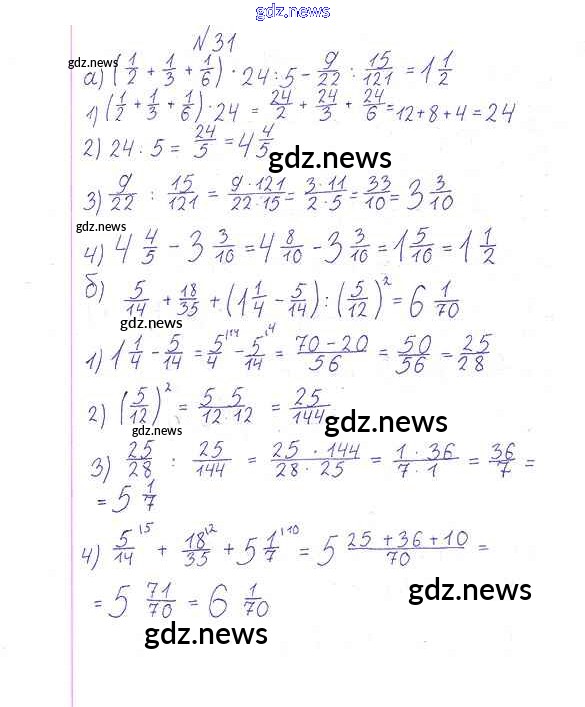 gdz.news
№31
gdz.news
а) (1/2 + 1/3 + 1/6) · 24 : 5 - 9/22 : 15/121 = 1 1/2
1) (1/2 + 1/3 + 1/6) · 24 = 24/2 + 24/3 + 24/6 = 12 + 8 + 4 = 24
2) 24 : 5 = 24/5 = 4 4/5
gdz.news
3) 9/22 : 15/121 = 9 · 121/22 · 15 = 3 · 11/2 · 5 = 33/10 = 3 3/10
gdz.news
4) 4 4/5 - 3 3/10 = 4 8/10 - 3 3/10 = 1 5/10 = 1 1/2
б) 5/14 + 18/35 + (1 1/4 - 5/14) : (5/12)² = 6 1/70
gdz.news
1) 1 1/4 - 5/14 = 5/4 |14 - 5/14 |4 = 70 - 20/56 = 50/56 = 25/28
2) (5/12)² = 5 · 5/12 · 12 = 25/144
gdz.news
gdz.news
3) 25/28 : 25/144 = 25 · 144/28 · 25 = 1 · 36/7 · 1 = 36/7 =
= 5 1/7
4) 5/14 |5 + 18/35 |2 + 5 1/7 |10 = 5 25 + 36 + 10/70 =
gdz.news
= 5 71/70 = 6 1/70
gdz.news